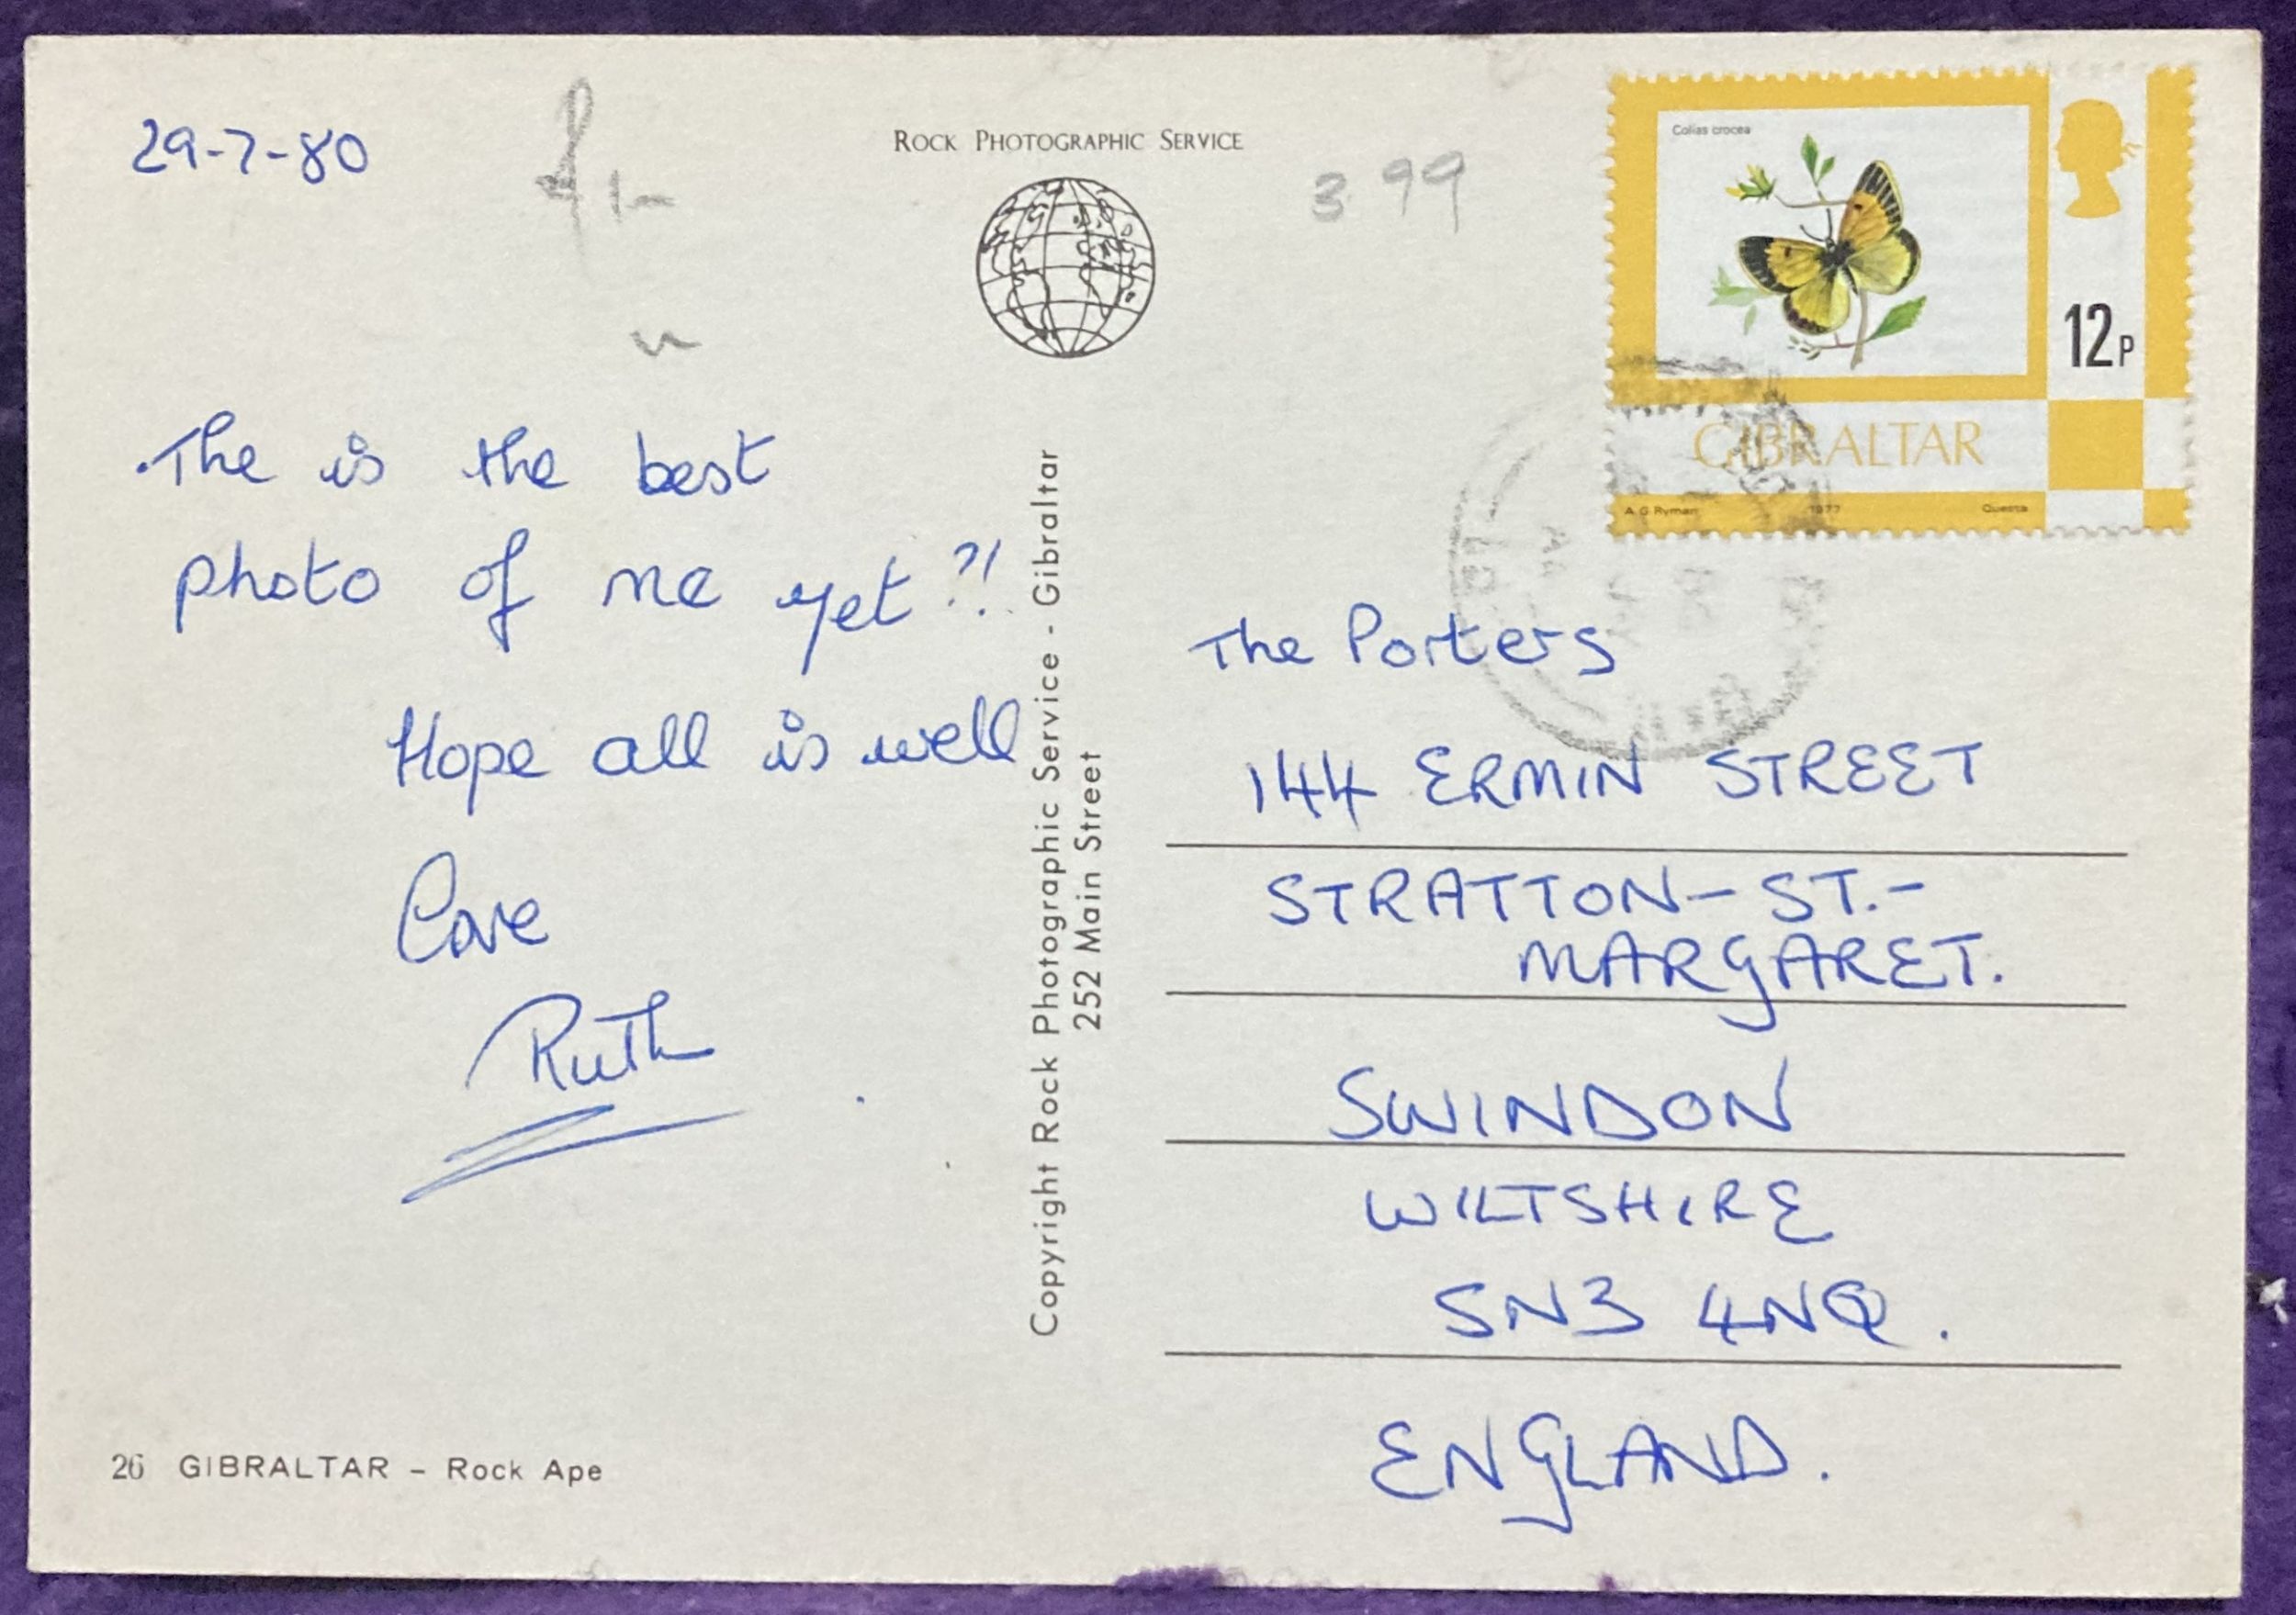 29-7-80
£1-
ROCK PHOTOGRAPHIC SERVICE
3 99
Colias crocea
12P
GIBRALTAR
A G Ryman 1977 Questa
The is the best
photo of me yet?!
Hope all is well
Love
Ruth
26 GIBRALTAR – Rock Ape
Copyright Rock Photographic Service - Gibraltar
252 Main Street
The Porters
144 ERMIN STREET
STRATTON-ST.-
MARGARET.
SWINDON
WILTSHIRE
SN3 4NQ.
ENGLAND.